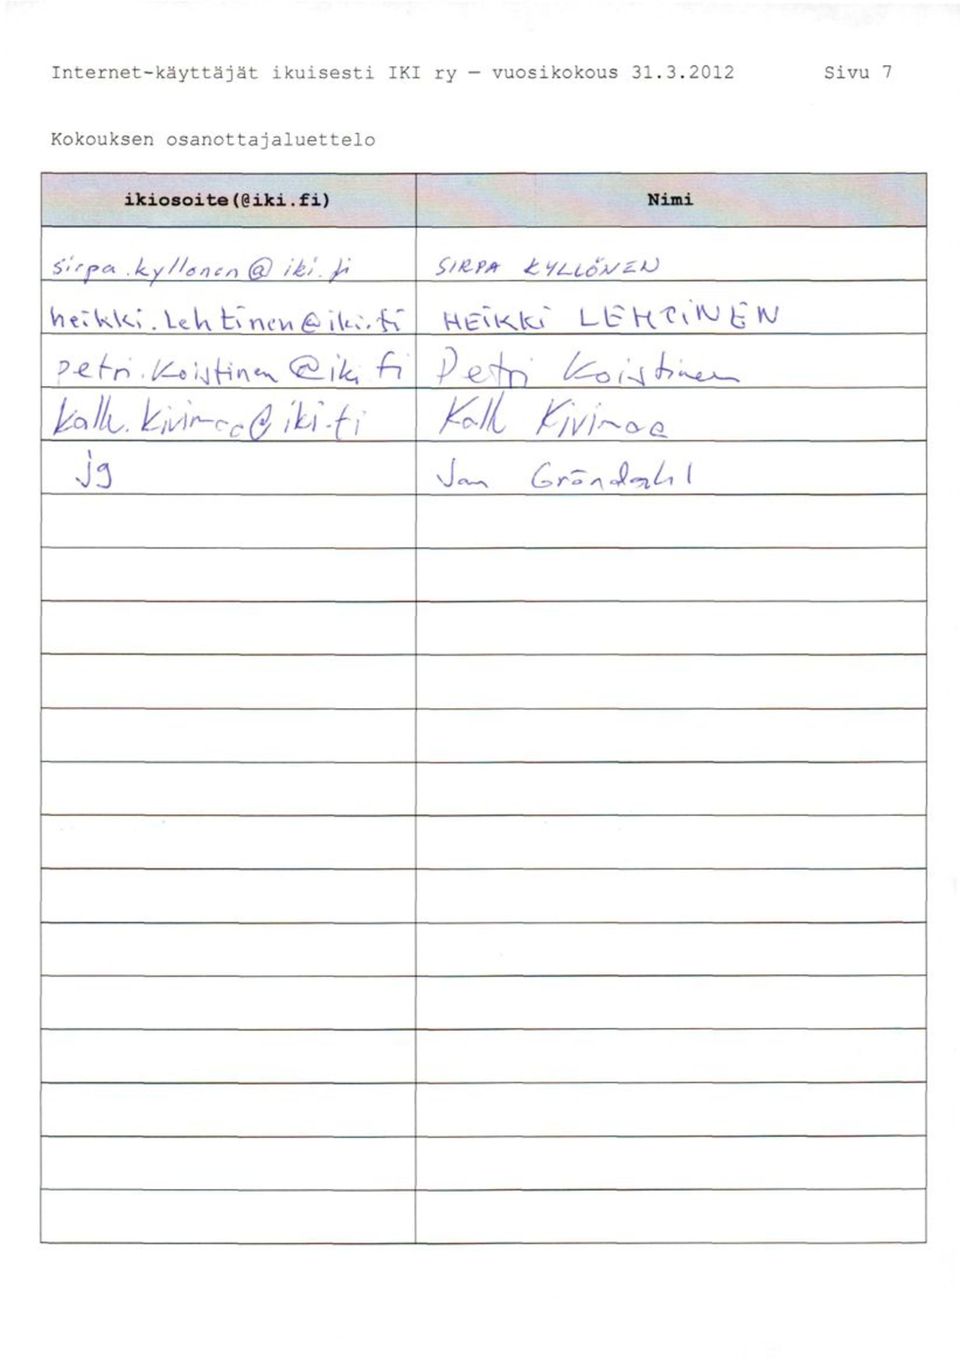 Internet-käyttäjät ikuisesti IKI ry – vuosikokous 31.3.2012 Sivu 7
Kokouksen osanottajaluettelo
ikiosoite(@iki.fi) Nimi
sirpa.kyllonen@iki.fi SIRPA KYLLÖNEN
heikki.lehtinen@iki.fi HEIKKI LEHTINEN
petri.koistinen@iki.fi Petri Koistinen
kalle.kivimaa@iki.fi Kalle Kivimaa
jg Jan Gröndahl